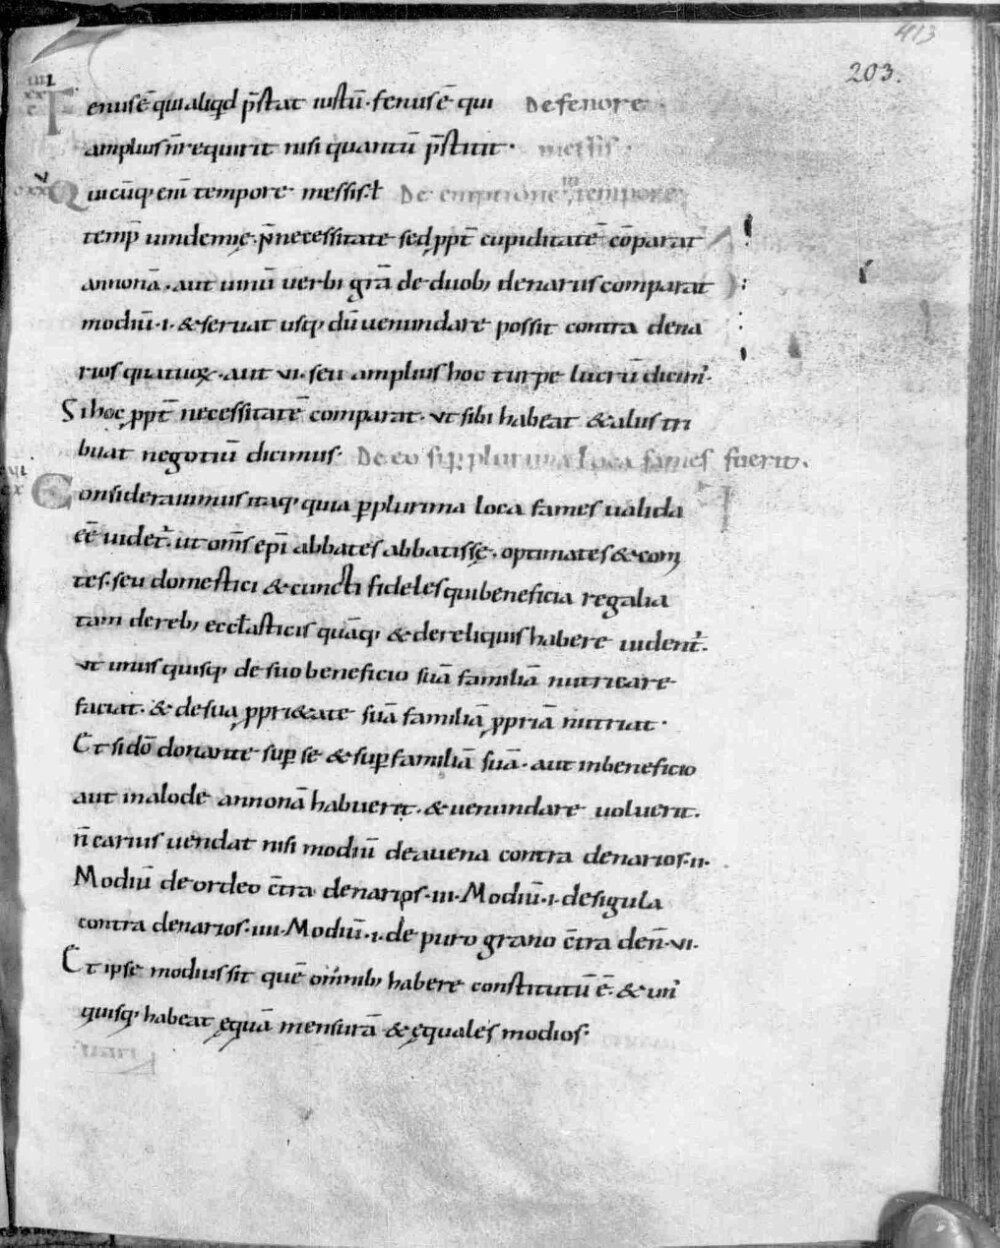 413
203.
Fenus ē qui aliqd p̄stat iustū. fenus ē qui De fenore
amplius n̄ requirit nisi quantū p̄stitit. messis.
Quicūq; eni tempore messis ł De emptione in tempore
temp̄ uindemię. p̄ necessitate sed ꝓpt̄ cupiditatē cōparat
annonā. aut uinū uerbi grā de duob; denariis comparat
modiū .i. & seruat usq; dū uenundare possit contra dena
rios quatuor. aut vi. seu amplius hoc turpe lucrū dicim᾽.
Si hoc ꝓpt̄ necessitatē comparat. vt sibi habeat & aliis tri
buat negotiū dicimus. De eo si p̱ plurima loca fames fuerit.
Consideravimus itaq; quia p̱ plurima loca fames ualida
ēē uidet᾽. ut om̄s ep̄i abbates abbatissę. optimates & com
tes. seu domestici & cuncti fideles qui beneficia regalia
tam de reb; eccłasticis quāq; & de reliquis habere uident᾽.
vt unusquisq; de suo beneficio suā familiā nutricare
faciat. & de sua ꝓpri&ate suā familiā ꝓpriā nutriat.
Et si dō donante sup̱ se & sup̱ familiā suā. aut in beneficio
aut in alode annonā habuerit. & uenundare uoluerit.
n̄ carius vendat nisi modiū de avena contra denarios .ii.
Modiū de ordeo c̄tra denarios .iii. Modiū .i. de sigula
contra denarios .iiii. Modiū .i. de puro grano c̄tra den̄ .vi.
Et ipse modius sit quē omnib; habere constitutū ē. & un᾽
quisq; habeat ęquā mensurā & ęquales modios.